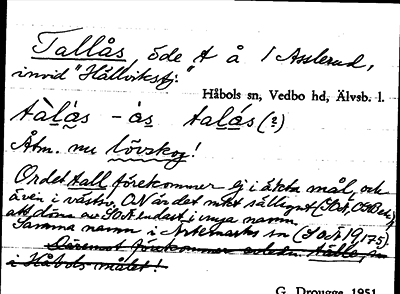 Tallås öde t å 1 Asslerud,
invid "Hållvikstj."
Håbols sn, Vedbo hd, Älvsb. l.
tàlàs -ás talás (?)
Åtm. nu lövskog!
Ordet tall förekommer ej i äkta mål, och
även i västsv. ON är det mkt sällsynt
att döma av SOÄ endast i unga namn.
Samma namn i Artemarks sn (SOÄ 19,175).
Däremot förekommer
i Håbols målet!
G. Drougge 1951